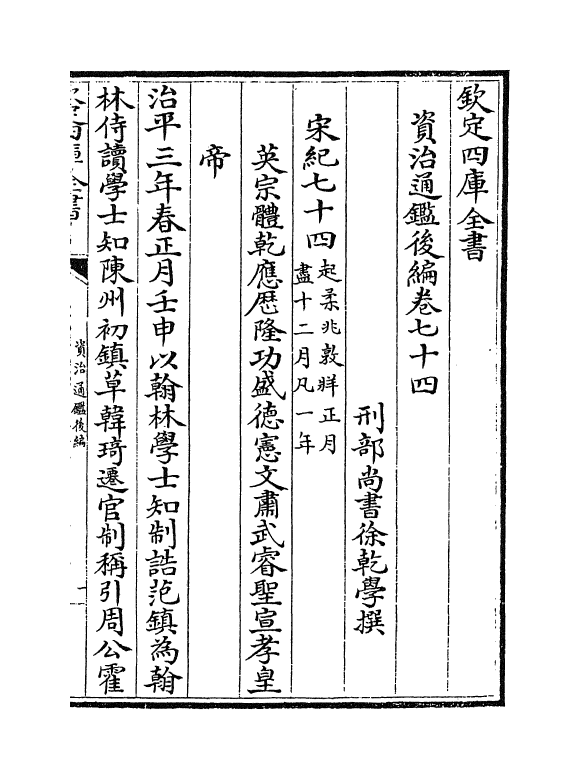 欽定四庫全書
資治通鑑後編卷七十四
刑部尚書徐乾學撰
宋紀七十四起柔兆敦牂正月
盡十二月凡一年
英宗體乾應厯隆功盛德憲文肅武睿聖宣孝皇
帝
治平三年春正月壬申以翰林學士知制誥范鎮為翰
林侍讀學士知陳州初鎮草韓琦遷官制稱引周公霍
資治通鑑後編